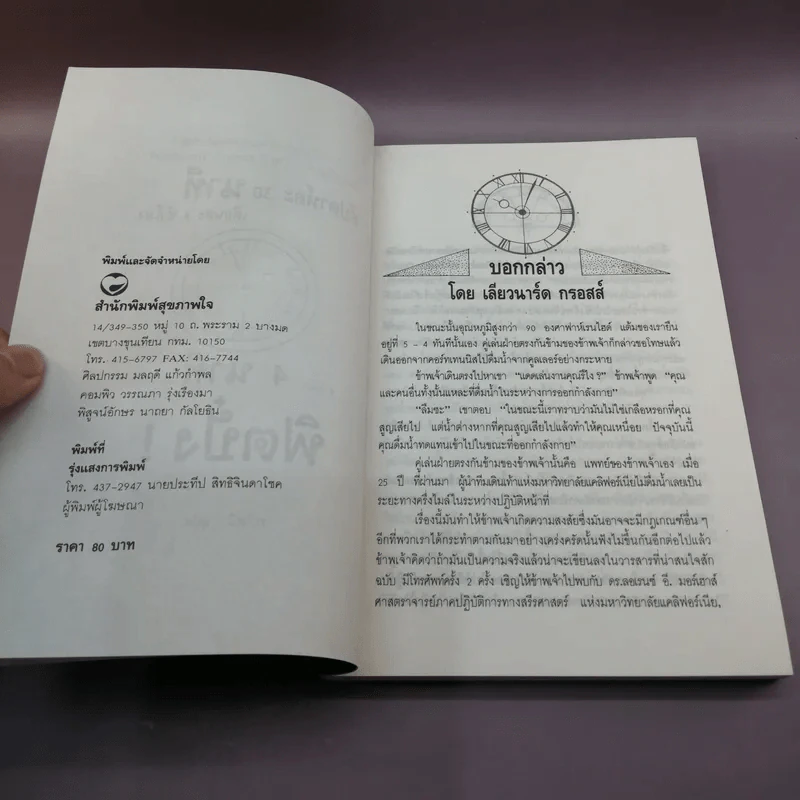 พิมพ์และจัดจำหน่ายโดย
สำนักพิมพ์สุขภาพใจ
14/349-350 หมู่ 10 ถ. พระราม 2 บางมด
เขตบางขุนเทียน กทม. 10150
โทร. 415-6797 FAX: 416-7744
ศิลปกรรม มลฤดี แก้วกำพล
คอมพิว วรรณภา รุ่งเรืองมา
พิสูจน์อักษร นาถยา กัลโยธิน
พิมพ์ที่
รุ่งแสงการพิมพ์
โทร. 437-2947 นายประทีป สิทธิจินดาโชค
ผู้พิมพ์ผู้โฆษณา
ราคา 80 บาท
บอกกล่าว
โดย เลียวนาร์ด กรอสส์
ในขณะนั้นอุณหภูมิสูงกว่า 90 องศาฟาห์เรนไฮต์ แต้มของเรายืน
อยู่ที่ 5 - 4 ทันทีนั้นเอง คู่เล่นฝ่ายตรงกันข้ามของข้าพเจ้าก็กล่าวขอโทษแล้ว
เดินออกจากคอร์ทเทนนิสไปดื่มน้ำจากคูลเลอร์อย่างกระหาย
ข้าพเจ้าเดินตรงไปหาเขา "แดดเล่นงานคุณรึไง ?" ข้าพเจ้าพูด "คุณ
และคนอื่นทั้งนั้นแหละที่ดื่มน้ำในระหว่างการออกกำลังกาย"
"ลืมซะ" เขาตอบ "ในขณะนี้เราทราบว่ามันไม่ใช่เกลือหรอกที่คุณ
สูญเสียไป แต่น้ำต่างหากที่คุณสูญเสียไปแล้วทำให้คุณเหนื่อย ปัจจุบันนี้
คุณดื่มน้ำทดแทนเข้าไปในขณะที่ออกกำลังกาย"
คู่เล่นฝ่ายตรงกันข้ามของข้าพเจ้านั้นคือ แพทย์ของข้าพเจ้าเอง เมื่อ
25 ปี ที่ผ่านมา ผู้นำทีมเดินเท้าแห่งมหาวิทยาลัยแคลิฟอร์เนียไม่ดื่มน้ำเลยเป็น
ระยะทางครึ่งไมล์ในระหว่างปฏิบัติหน้าที่
เรื่องนี้มันทำให้ข้าพเจ้าเกิดความสงสัยซึ่งมันอาจจะมีกฎเกณฑ์อื่น ๆ
อีกที่พวกเราได้กระทำตามกันมาอย่างเคร่งครัดนั้นฟังไม่ขึ้นกันอีกต่อไปแล้ว
ข้าพเจ้าคิดว่าถ้ามันเป็นความจริงแล้วน่าจะเขียนลงในวารสารที่น่าสนใจสัก
ฉบับ มีโทรศัพท์ครั้ง 2 ครั้ง เชิญให้ข้าพเจ้าไปพบกับ ดร.ลอเรนซ์ อี. มอร์เฮาส์
ศาสตราจารย์ภาคปฏิบัติการทางสรีรศาสตร์ แห่งมหาวิทยาลัยแคลิฟอร์เนีย,